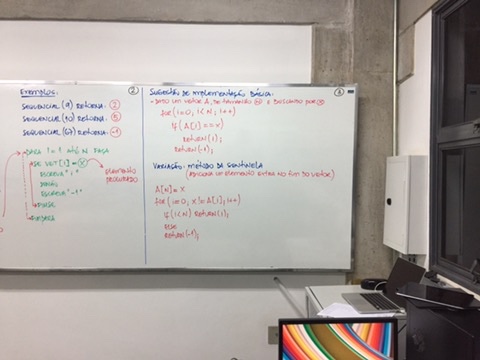 Exemplos:
2
SEQUENCIAL (9) RETORNA: 2
SEQUENCIAL (10) RETORNA: 5
SEQUENCIAL (67) RETORNA: -1
PARA i = 1 ATÉ N FAÇA
SE VET[i] = X
ESCREVA "i"
SENÃO
ESCREVA "-1"
FIMSE
FIMPARA
ELEMENTO
PROCURADO
SUGESTÃO DE IMPLEMENTAÇÃO BÁSICA:
3
- DADO UM VETOR A, DE TAMANHO N E BUSCANDO POR X
for(i=0; i<N; i++)
if(A[i]==x)
return(i);
return(-1);
VARIAÇÃO: MÉTODO DA SENTINELA
(ADICIONA UM ELEMENTO EXTRA NO FIM DO VETOR)
A[N]=X
for(i=0; x!=A[i]; i++)
if(i<N) return(i);
else
return(-1);